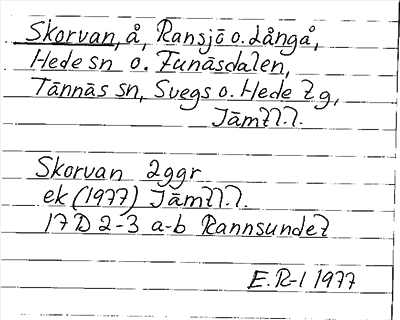 Skorvan, å, Ransjö o. Långå,
Hede sn o. Funäsdalen,
Tännäs sn, Svegs o. Hede lg,
Jämtl.l.
Skorvan 2ggr
ek (1977) Jämtl.l.
17D 2-3 a-b Rannsundet
E.R-l 1977